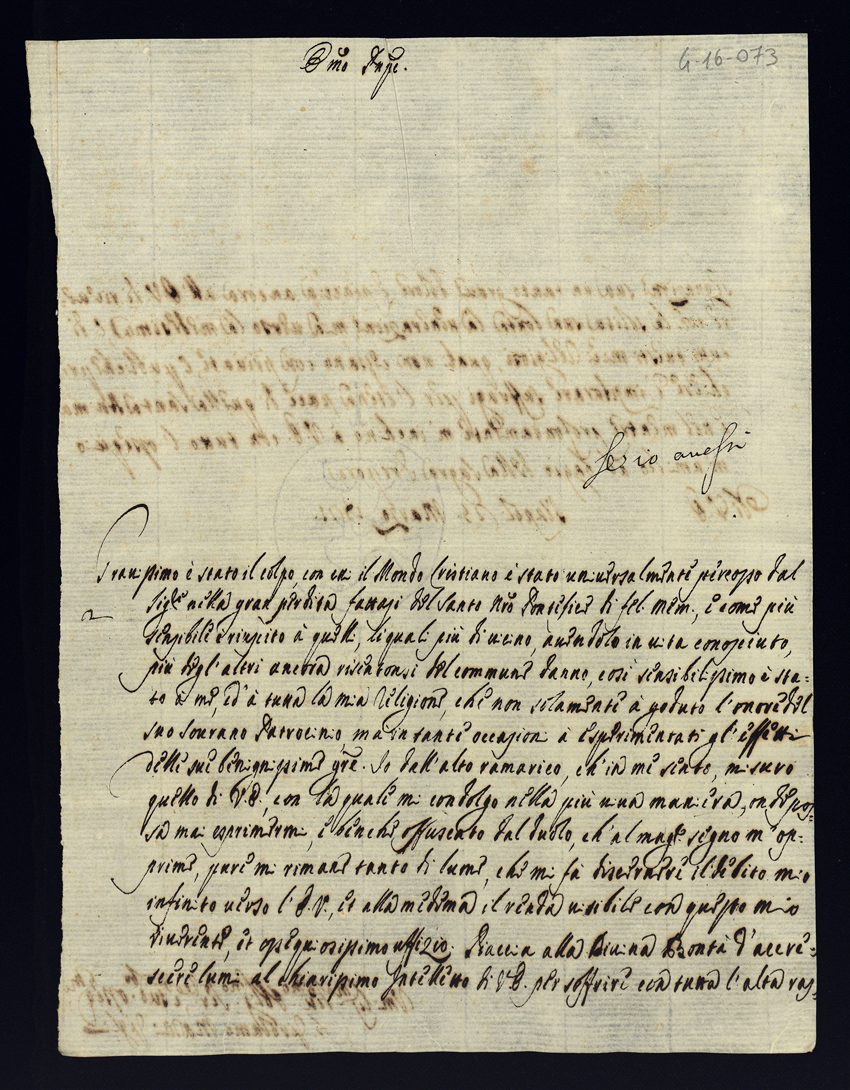 G-16-073
Grauissimo è stato il colpo, con cui il Mondo Cristiano è stato uniuersalmente percosso dal
Sig.re nella gran perdita fattasi del Santo Nrõ Pontefice di fel. mem., e come più
sensibile è riuscito à quelli, li quali più di uicino, auendolo in uita conosciuto,
più degl'altri ancora risentonsi del commune danno, così sensibilissimo è sta-
to à me, ed'à tutta la mia Religione, che non solamente à goduto l'onore del
suo sourano Patrocinio, ma in tante occasioni à esperimentati gl'effetti
delle sue benignissime gr̃e. Io dall'alto ramarico, ch'in me sento, misuro
quello di V.E., con la quale mi condolgo nella più uiua maniera, onde pos-
sa mai esprimermi, e benche offuscato dal duolo, ch'al magr. segno m'op-
prime, pure mi rimane tanto di lume, che mi fà discernere il debito mio
infinito uerso l'E.V., et alla medema il renda uisibile con questo mio
riuerente, et ossequiosissimo uffizio. Piaccia alla Diuina Bontà d'accre-
scere lumi al chiarissimo Intelletto di V.E. per soffrire con tutta l'alta ras-